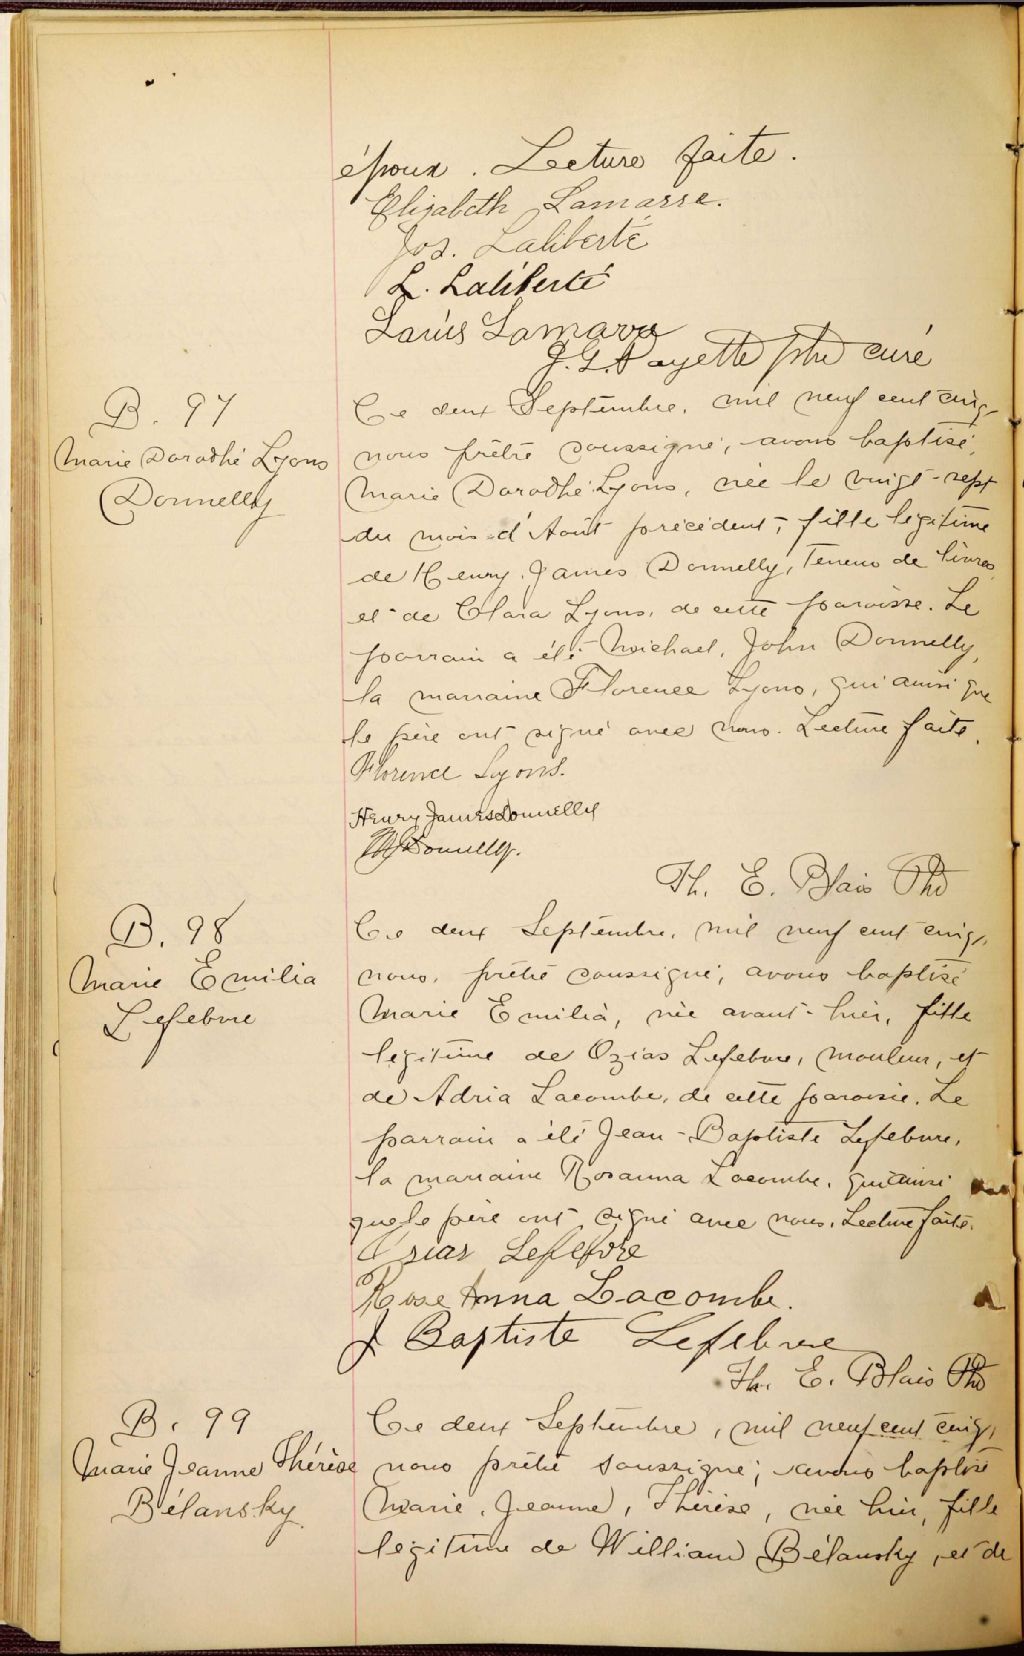 époux. Lecture faite.
Elizabeth Lamarre.
Jos. Laliberté
L. Laliberté
Louis Lamarre
J. G. Payette ptre curé
B. 97
Marie Dorothé Lyons
Donnelly
Ce deux Septembre, mil neuf cent cinq,
nous prêtre soussigné, avons baptisé,
Marie Dorothé Lyons, née le vingt-sept
du mois d'Août précédent, fille légitime
de Henry James Donnelly, teneur de livres,
et de Clara Lyons, de cette paroisse. Le
parrain a été Michael, John Donnelly,
la marraine Florence Lyons, qui ainsi que
le père ont signé avec nous. Lecture faite.
Florence Lyons.
Henry James Donnelly
MJ Donnelly.
Th. E. Blais Ptre
B. 98
Marie Emilia
Lefebvre
Ce deux Septembre, mil neuf cent cinq,
nous, prêtre soussigné, avons baptisé
Marie Emilia, née avant-hier, fille
légitime de Ozias Lefebvre, mouleur, et
de Adria Lacombe, de cette paroisse. Le
parrain a été Jean-Baptiste Lefebvre,
la marraine Rosanna Lacombe, qui ainsi
que le père ont signé avec nous. Lecture faite.
Ozias Lefebvre
Rose Anna Lacombe.
J Baptiste Lefebvre
Th. E. Blais Ptre
B. 99
Marie Jeanne Thérèse
Bélansky
Ce deux Septembre, mil neuf cent cinq,
nous prêtre soussigné, avons baptisé
Marie, Jeanne, Thérèse, née hier, fille
légitime de William Bélansky, et de